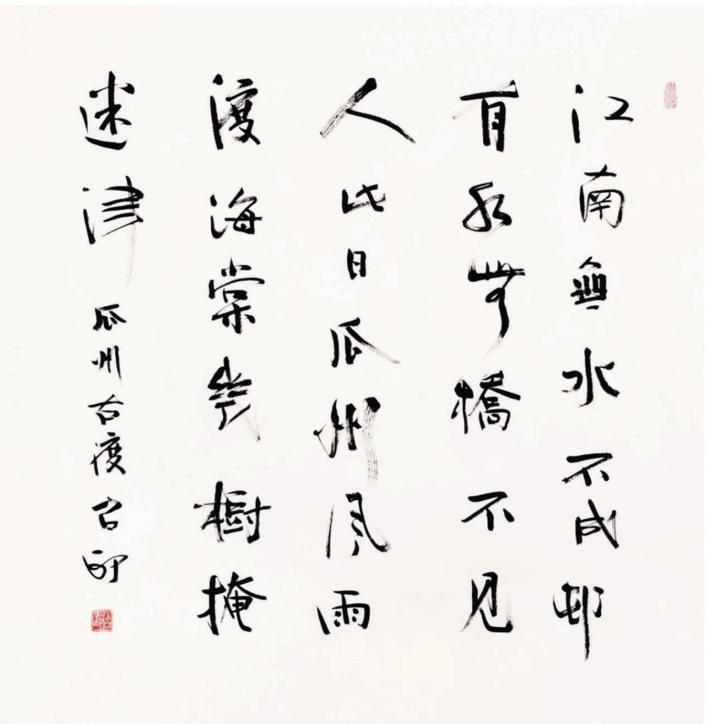 江南無水不成邨
有水無橋不見
人此日瓜州風雨
渡海棠幾樹掩
迷津
瓜州古渡